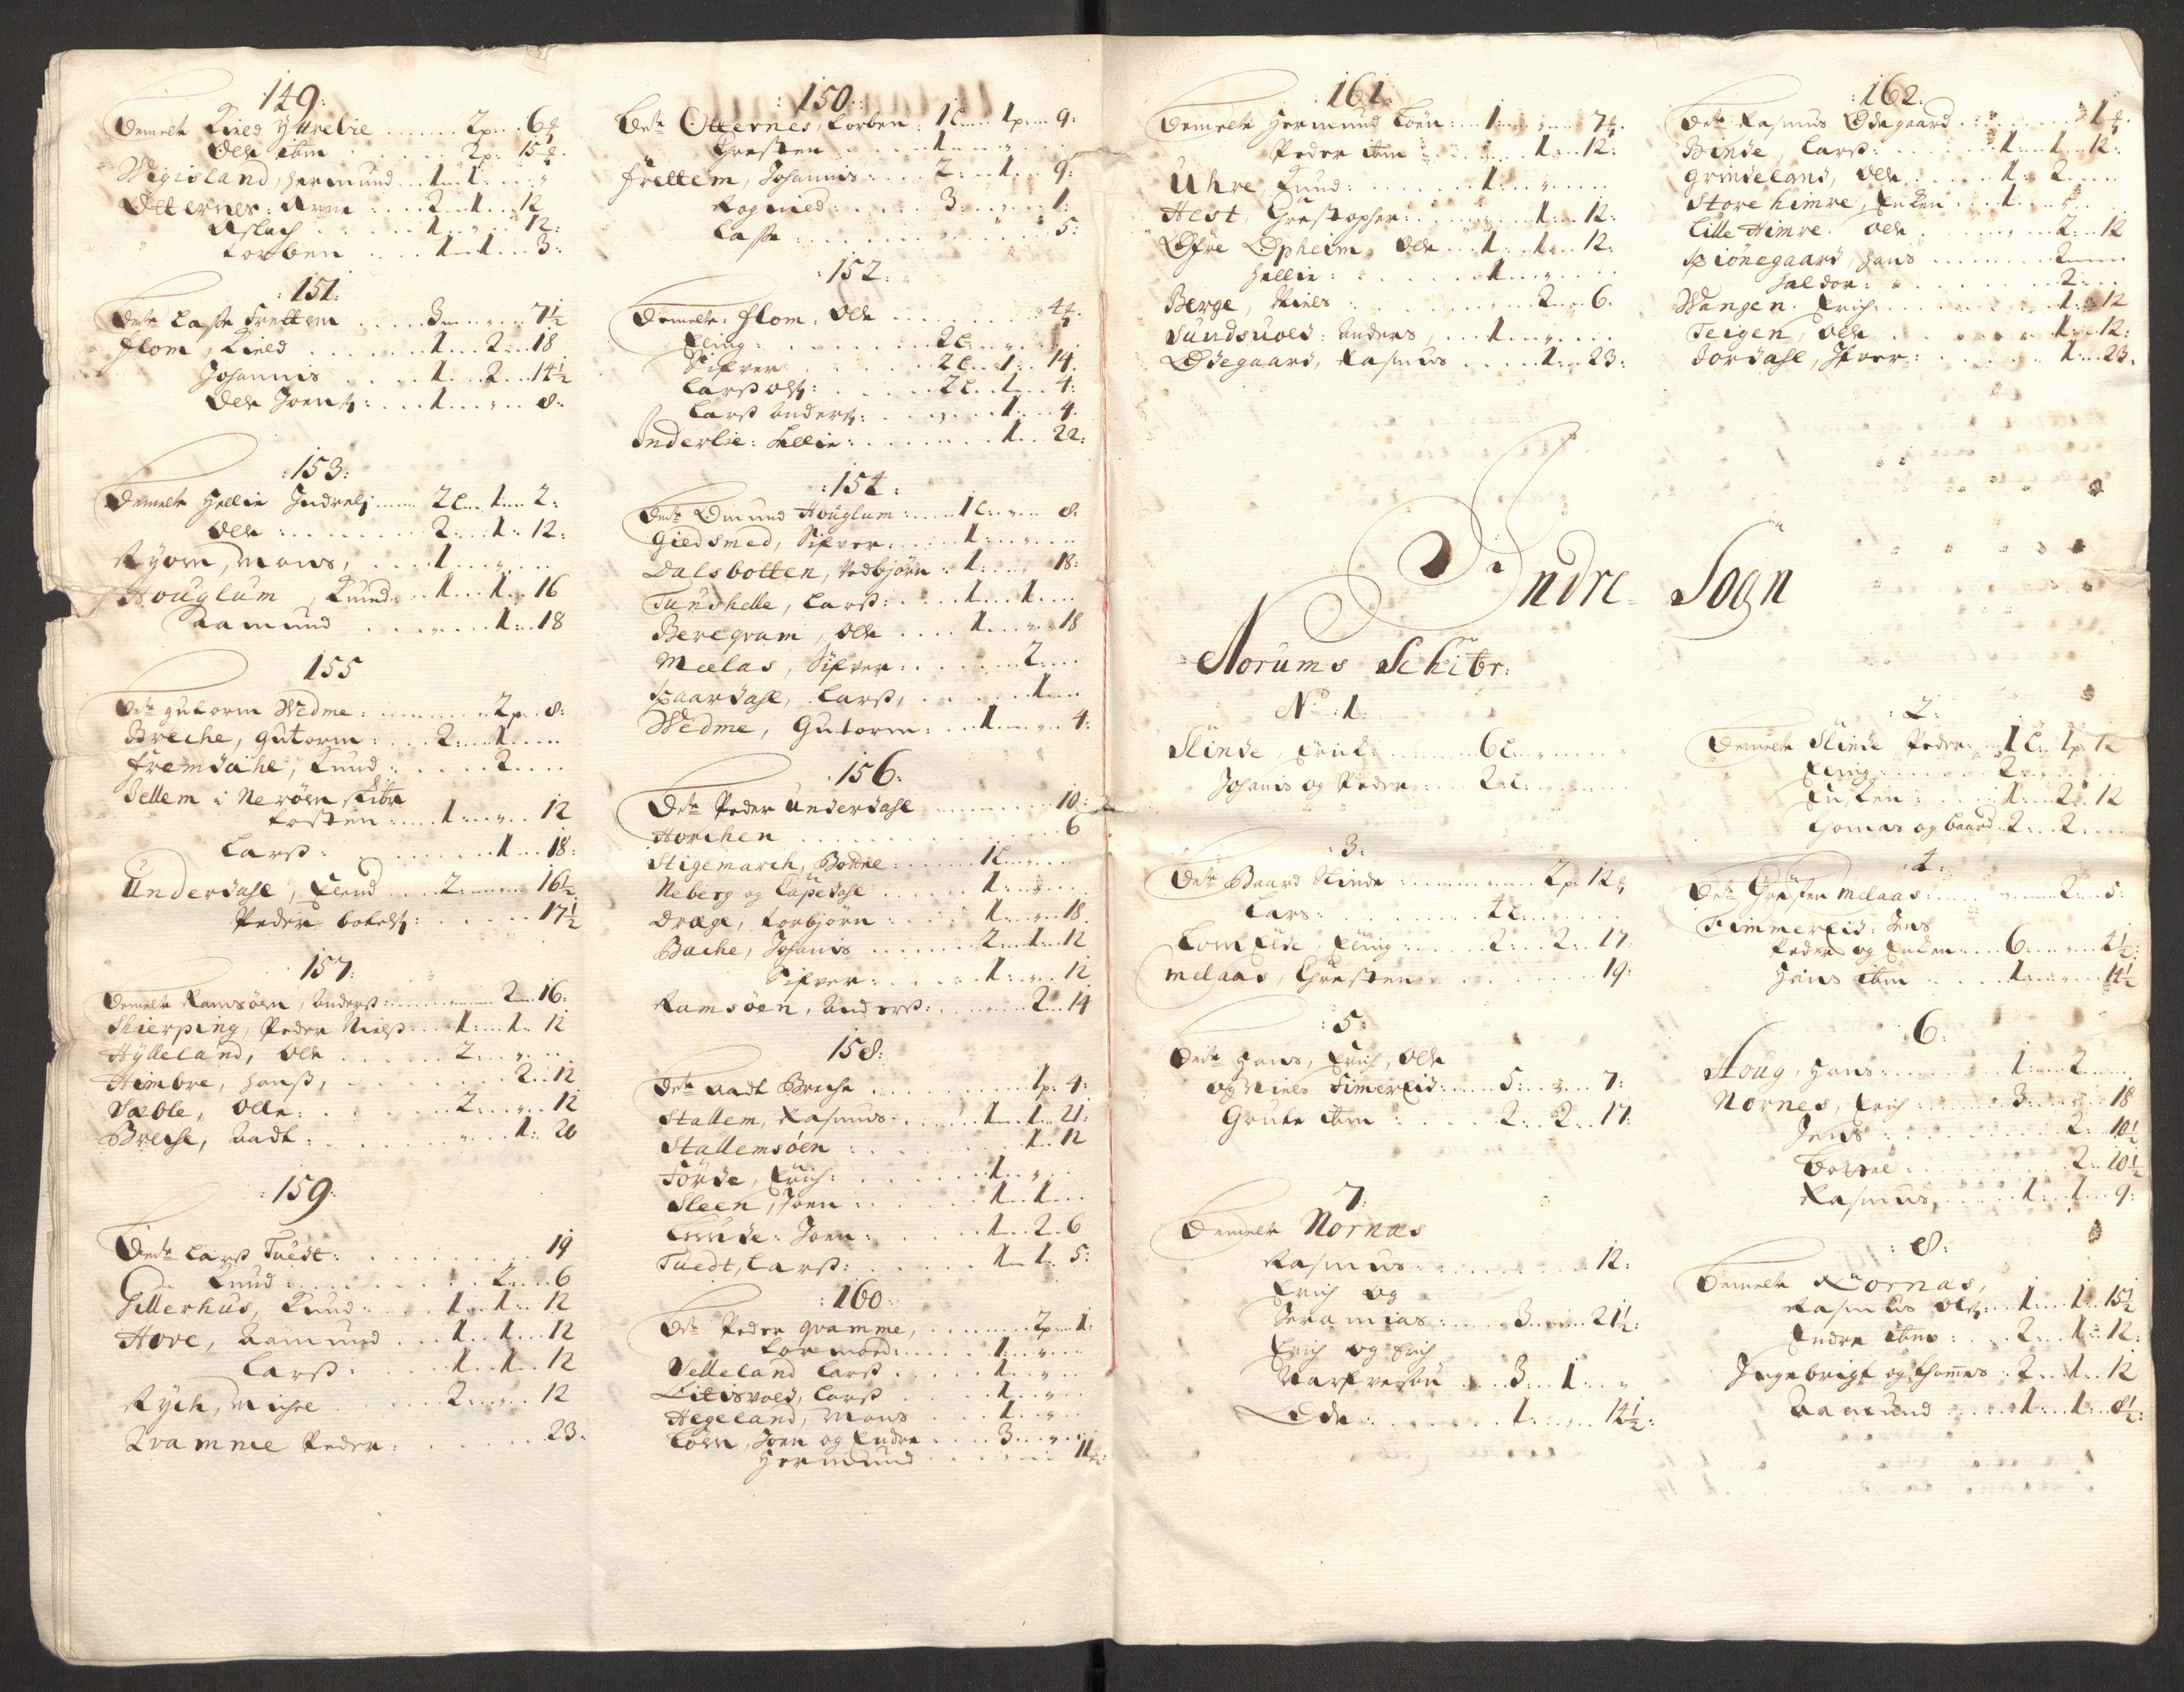 :149:
Bemelte Kield Yttrelie ...... 2p. 6¼
Olle ibm ...... 2p: 15½
Wigisland, Hermund .. 1. 1. "
Otternes: Arm ... 2. 1. 12
Aslach ..... 1. " 12:
Torben .... 1. 1. 3:
:151:
Dete Lasse Frettem .... 3 " 7½
Flom, Kield ..... 1. 2. 18
Johannis .... 1. 2. 14½
Olle Joens: ... 1. " 8:
:153:
Bemelte Hellie Indrelj ..... 2L. 1. 2:
Olle : ...... 2. 1. 12:
Ryom, Mons, .... 1. "
Houglum, Knud: .. 1. 1. 16
Aamund ..... " 1. 18
155
Dete gutorm Wedme: ..... 2p. 8:
Breche, gutorm: ... 2. 1.
Fremdahl, Knud: .... 2.
Sellem i Nerøen skibr
Tosten: ... 1. " 12
Lars: ...... 1. 18:
Underdahl, Elend ... 2. " 16½
Peder botols: ..... 17½
157:
Bemelte Ramsøen, Anders: ..... 2. 16:
Skierping, Peder Niels .. 1. 1. 12
Hylleland, Olle ..... 2. "
Himbre, Hans, ...... 2. 12
Sæble, Olle: ..... 2. " 12
Breche, Aadt: ..... " 1: 20
:159:
Dete Lars Tuedt: ...... 19
Knud: ...... 2. 6
Hillerhus, Knud: ... 1. 1. 12
Hove, Aamund ... 1. 1. 12
Lars: .... 1. 1. 12
Rych, Michel .... 2. " 12
Qvamme Peder: ...... 23:
:150:
Dete Otternes, Torben: 1L. 1p. 9:
Christen ..... 1. "
Frettem, Johannis: ... 2. 1. 9:
Rognied: .... 3. " 1:
Lasse ....... " 5:
:152:
Bemelte: Flom, Olle ...... 4¼.
Elling: ..... 2L. "
Sifver ..... 2L. 1. 14.
Lars Ols: .... 2L. 1. 4:
Lars Anders: .... " 1. 4.
Inderlie: Hellie: ...... 1. 22:
:154:
Dete Omund Houglum: ... 1L. " 8:
Giedsmed, Sifver: ... 1. "
Dalsbotten, Vedbjørn . 1. " 18:
Tunshelle, Lars: .... 1. 1.
Beregvam, Olle .... 1. " 18
Melas, Sifver: ..... 2.
Spaardahl, Lars, ..... 1.
Wedme, Gutorm: ... 1. " 4:
:156:
Dete Peder Underdahl ..... 10:
Horchen ....... 6
Stigemarch, Botne: .... 1L. "
Neberg og Capedahl .... 1. "
Drage, Torbjørn .... 1. " 18.
Bache, Johannis ..... 2. 1. 12
Sifver: ..... 1. " 12
Ramsøen, Anders: ...... 2. 14
158:
Dete Aadt Breche ...... 1p: 4:
Stallem, Rasmus ..... 1. 1. 21:
Stallemsøen: ...... 1. 12
Førde, Erich: ..... 1. "
Steen, Joen: ..... 1. 1.
Lunde: Joen: ..... 1. 2. 6
Tuedt, Lars: ..... 1. 1. 5:
:160:
Dete Peder qvamme, ..... 2p. 1:
Tormoed: ..... 1. "
Velleland Lars ..... 1. "
Litisvold, Lars ..... 1. "
Hegeland, Mons .... 1. "
Loen, Joen og Endre ... 3. "
Hermund ..... 11½:
:161:
Bemelte Hermund Loen: .. 1. " 7¼.
Peder ibm ..... 1. 12:
Uhre, Knud: ..... 1. "
Hest, Christopher: ..... 1. 12:
Øfre Opheim, Olle ... 1. 1. 12:
Hellie: ..... 1. "
Berge, Niels ...... 2. 6.
Sundsuold: Anders, ... 1. "
Ødegaard, Rasmus ..... 1. 23:
:162:
Dete Rasmus Ødegaard ...... 1¼.
Binde, Lars: ..... 1. 1. 12:
Grindeland, Olle ..... 1. 2.
Store himre, Enken ... 1. "
Lille Himre, Olle ..... 2. 12
Spiønegaard, Hans ..... 2.
Haldor: ..... 2.
Wangen, Erich ...... 1. 12
Teigen, Olle ...... 1. 12:
Jordahl, Ifver: ..... 1. 23.
Indre Sogn
Norums Schibr:
No: 1:
Slinde, Erick: ..... 6L. "
Johanis og Peder ... 2L. "
: 2:
Bemelte Slinde Peder: .. 1L. 1p. 12
Elling: ..... 2. "
Christen: .... 1. 2. 12
Thomas og Baard .. 2. 2.
: 3:
Dete Baard Slinde ...... 2p. 12¼
Lars: ...... 4L. "
Lomelde, Elling: .... 2. 2. 17:
Melaas, Christen ...... 19:
: 4:
Dete Christen Melaas: ..... 2. 5:
Fimmereid: Jens
Peder og Enken .. 6. " 4½:
Hans ibm .... 1. " 14½
: 5:
Dete Hans, Erich, Olle
og Niels Fimereid .... 5. " 7:
Grute ibm : .... 2. 2. 17:
6:
Houg, Hans: ..... 1. 2.
Nornes, Erich ..... 3. " 18
Jens ....... 2: 10½
Botolf ...... 2. 10½
Rasmus, .... 1. 1. 9:
7:
Bemelte Nornæs
Rasmus: ..... 12:
Erich og
Jeramias: .... 3. " 21½:
Erich og Erich
Narfvesøn ... 3. 1. "
Ede ..... 1. " 14½:
: 8:
Bemelte Nornas,
Rasmus Ols: .. 1. 1. 15½
Endre ibm: ... 2. 1. 12:
Ingebrigt og Thomes: 2. 1. 12
Aamund .... 1. 1. 8½: